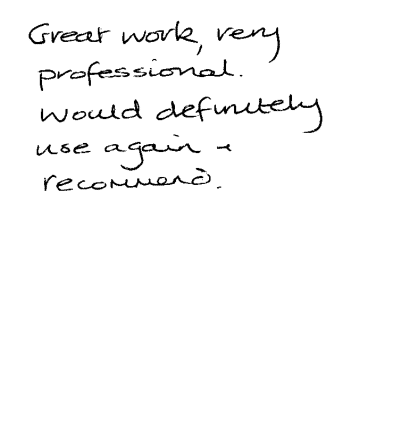 Great work, very
professional.
Would definitely
use again +
recommend.